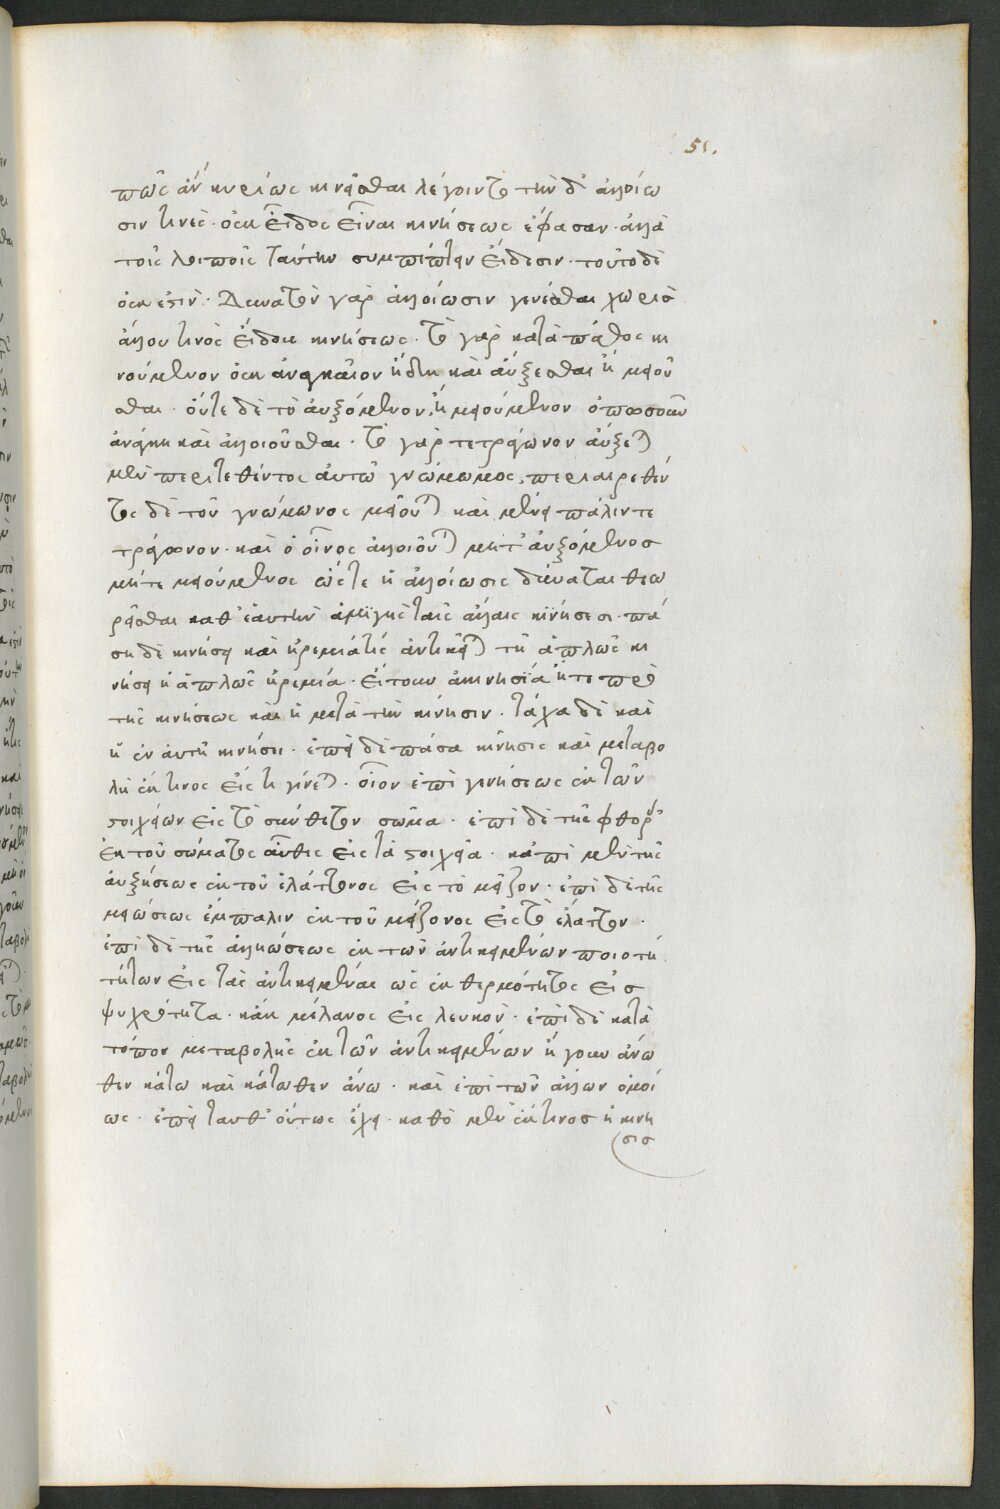 51.
πῶς ἂν κυρίως κινεῖσθαι λέγοιντο τὴν δ' ἀλλοίω
σιν τινὲς οὐκ εἶδος εἶναι κινήσεως ἔφασαν ἀλλὰ
τοῖς λοιποῖς ταύτην συμπίπτειν εἴδεσιν· τοῦτο δὲ
οὐκ ἔστιν· Δυνατὸν γὰρ ἀλλοίωσιν γενέσθαι χωρὶς
ἄλλου τινὸς εἴδους κινήσεως· τὸ γὰρ κατὰ πάθος κι
νούμενον οὐκ ἀναγκαῖον ἤδη καὶ αὔξεσθαι ἢ μειοῦ
σθαι· οὔτε δὲ τὸ αὐξόμενον ἢ μειούμενον ὁπωσοῦν
ἀνάγκη καὶ ἀλλοιοῦσθαι· τὸ γὰρ τετράγωνον αὔξεται
μὲν περιτεθέντος αὐτῷ γνώμωμος, περιαιρεθέν
τος δὲ τοῦ γνώμωνος μειοῦται καὶ μένει πάλιν τε
τράγωνον· καὶ ὁ οἶνος ἀλλοιοῦται μήτ' αὐξόμενος
μήτε μειούμενος ὥστε ἡ ἀλλοίωσις δύναται θεω
ρεῖσθαι καθ' ἑαυτὴν ἀμιγὴς ταῖς ἄλλαις κινήσεσι· πά
σῃ δὲ κινήσει καὶ ἠρεμία τις ἀντίκειται τῇ ἁπλῶς κι
νήσει ἡ ἁπλῶς ἠρεμία· εἴτουν ἀκινησία ἥτε πρὸ
τῆς κινήσεως καὶ ἡ μετὰ τὴν κίνησιν· τάχα δὲ καὶ
ἡ ἐν αὐτῇ κινήσει· ἐπεὶ δὲ πάσα κίνησις καὶ μεταβο
λὴ ἔκ τινος εἴς τι γίνεται· οἷον ἐπὶ γενήσεως ἐκ τῶν
στοιχείων εἰς τὸ σύνθετον σῶμα· ἐπὶ δὲ τῆς φθορᾶς
ἐκ τοῦ σώματος αὖθις εἰς τὰ στοιχεῖα· κἀπὶ μὲν τῆς
αὐξήσεως ἐκ τοῦ ἐλάττονος εἰς τὸ μεῖζον· ἐπὶ δὲ τῆς
μειώσεως ἔμπαλιν ἐκ τοῦ μείζονος εἰς τὸ ἔλαττον·
ἐπὶ δὲ τῆς ἀλλοιώσεως ἐκ τῶν ἀντικειμένων ποιοτή
τήτων εἰς τὰς ἀντικειμένας ὡς ἐκ θερμότητος εἰς
ψυχρότητα· κἀκ μέλανος εἰς λευκόν· ἐπὶ δὲ κατὰ
τόπον μεταβολῆς ἐκ τῶν ἀντικειμένων ἤγουν ἄνω
θεν κάτω καὶ κάτωθεν ἄνω· καὶ ἐπὶ τῶν ἄλλων ὁμοί
ως· ἐπεὶ ταῦθ' οὕτως ἔχει· καθὸ μὲν ἔκ τινος ἡ κινη
σις